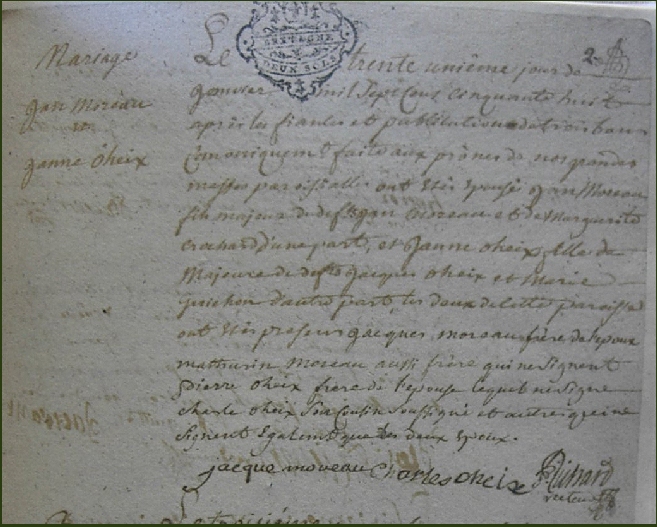 Mariage
Jan Moreau
et
Janne oheix
BRETAGNE
DEUX SOLS
2
Le trente unième jour de
Janvier mil Sept Cens Cinquante huit
après les fiancles et publications de trois bans
Canoniquemt faite aux prônes de nos grandes
messes paroissialles ont étés épousé Jan Moreau
fils majeur de deft Jan Moreau et de Marguerite
Crochard d'une part, et Janne oheix fille
Majeure de defts Jacques oheix et Marie
guichon d'autre part, les deux de cette paroisse
ont étés presens Jacques moreau frère de l'epoux
mathurin Moreau aussi frère qui ne Signent
pierre oheix frere de l'epouse lequel ne Signe
charle oheix Son Cousin Soussigné et autres qui ne
Signent Egalemt que les deux Epoux.
jacque moreau Charles oheix Richard
recteur
troisième